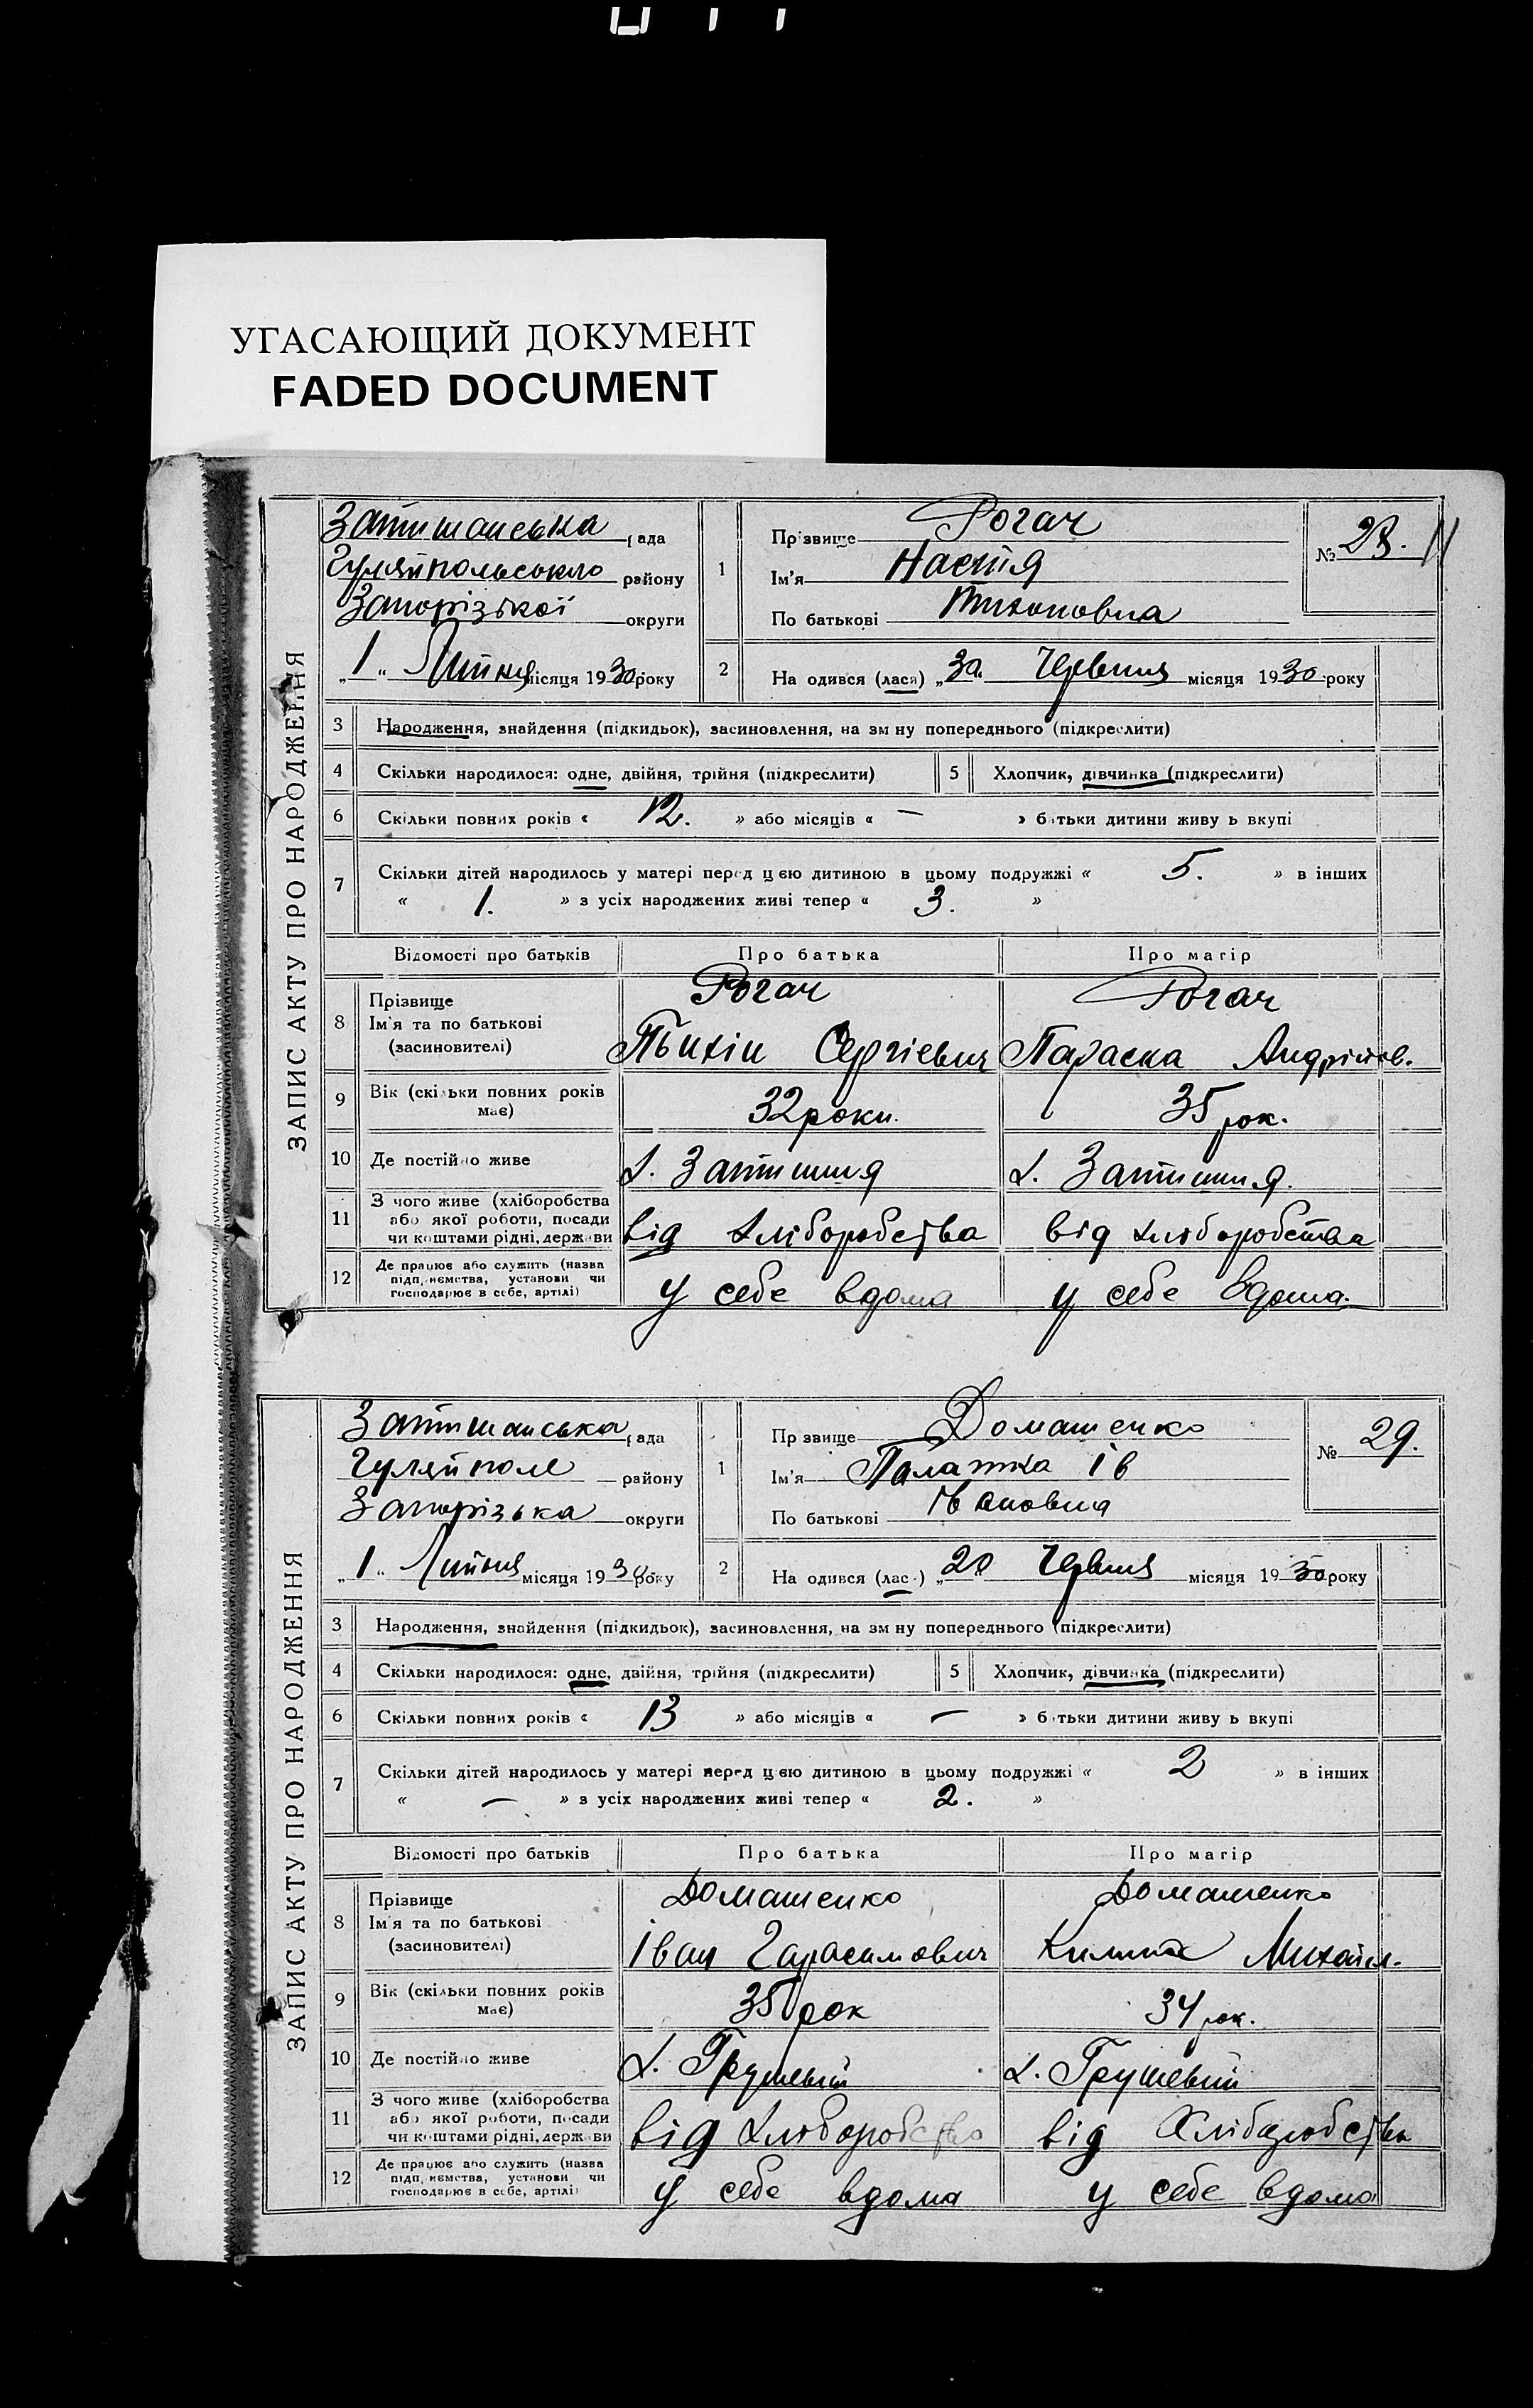 УГАСАЮЩИЙ ДОКУМЕНТ
FADED DOCUMENT
ЗАПИС АКТУ ПРО НАРОДЖЕННЯ
Затишанська рада
Гуляйпольського району
Запорізької округи
„1“ Липня місяця 1930 року
1
Прізвище Рогач
Ім'я Настя
По батькові Тихоновна
№ 28. 11
2 На одився (лася) „30. Червня місяця 1930 року
3 Народження, знайдення (підкидьок), засиновлення, на зм ну попереднього (підкреслити)
4 Скільки народилося: одне, двійня, трійня (підкреслити) 5 Хлопчик, дівчинка (підкреслити)
6 Скільки повних років « 12. » або місяців « — » б тьки дитини живу ь вкупі
7 Скільки дітей народилось у матері перед цією дитиною в цьому подружжі « 5. » в інших
« 1. » з усіх народжених живі тепер « 3. »
Відомості про батьків Про батька Про матір
8 Прізвище Рогач Рогач
Ім'я та по батькові
(засиновителі) Сергієвич Параска Андріїов.
9 Вік (скільки повних років має) 32 роки. 35 рок.
10 Де постійно живе х. Затишшя х. Затишшя.
11 З чого живе (хліборобства
або якої роботи, посади
чи коштами рідні, держави від хліборобства від хліборобства
12 Де працює або служить (назва
підприємства, установи чи
господарює в себе, артілі) у себе вдома у себе вдома.
ЗАПИС АКТУ ПРО НАРОДЖЕННЯ
Затишанська рада
Гуляйполе району
Запорізька округи
„1“ Липня місяця 1930 року
1
Пр звище Домашенко
Ім'я Палажка Ів
По батькові Івановна
№ 29.
2 На одився (лас ) „20 Червня місяця 1930 року
3 Народження, знайдення (підкидьок), засиновлення, на зм ну попереднього (підкреслити)
4 Скільки народилося: одне, двійня, трійня (підкреслити) 5 Хлопчик, дівчинка (підкреслити)
6 Скільки повних років « 13 » або місяців « — » б тьки дитини живу ь вкупі
7 Скільки дітей народилось у матері перед цією дитиною в цьому подружжі « 2 » в інших
« — » з усіх народжених живі тепер « 2. »
Відомості про батьків Про батька Про матір
8 Прізвище Домашенко Домашенко
Ім'я та по батькові
(засиновителі) Іван Гарасимович Михайл.
9 Вік (скільки повних років має) 35 рок 34 рок.
10 Де постійно живе х. Грушевий х. Грушевий
11 З чого живе (хліборобства
або якої роботи, посади
чи коштами рідні, держави від хліборобства від хліборобства
12 Де працює або служить (назва
підприємства, установи чи
господарює в себе, артілі) у себе вдома у себе вдома